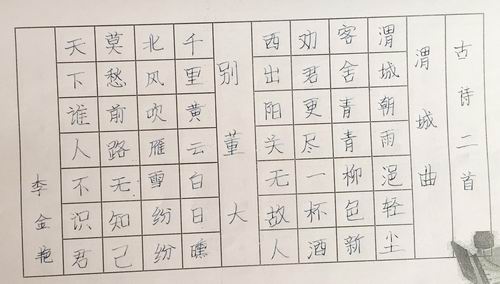 古诗二首
渭城曲
渭城朝雨浥轻尘
客舍青青柳色新
劝君更尽一杯酒
西出阳关无故人
别董大
千里黄云白日曛
北风吹雁雪纷纷
莫愁前路无知己
天下谁人不识君
李金艳